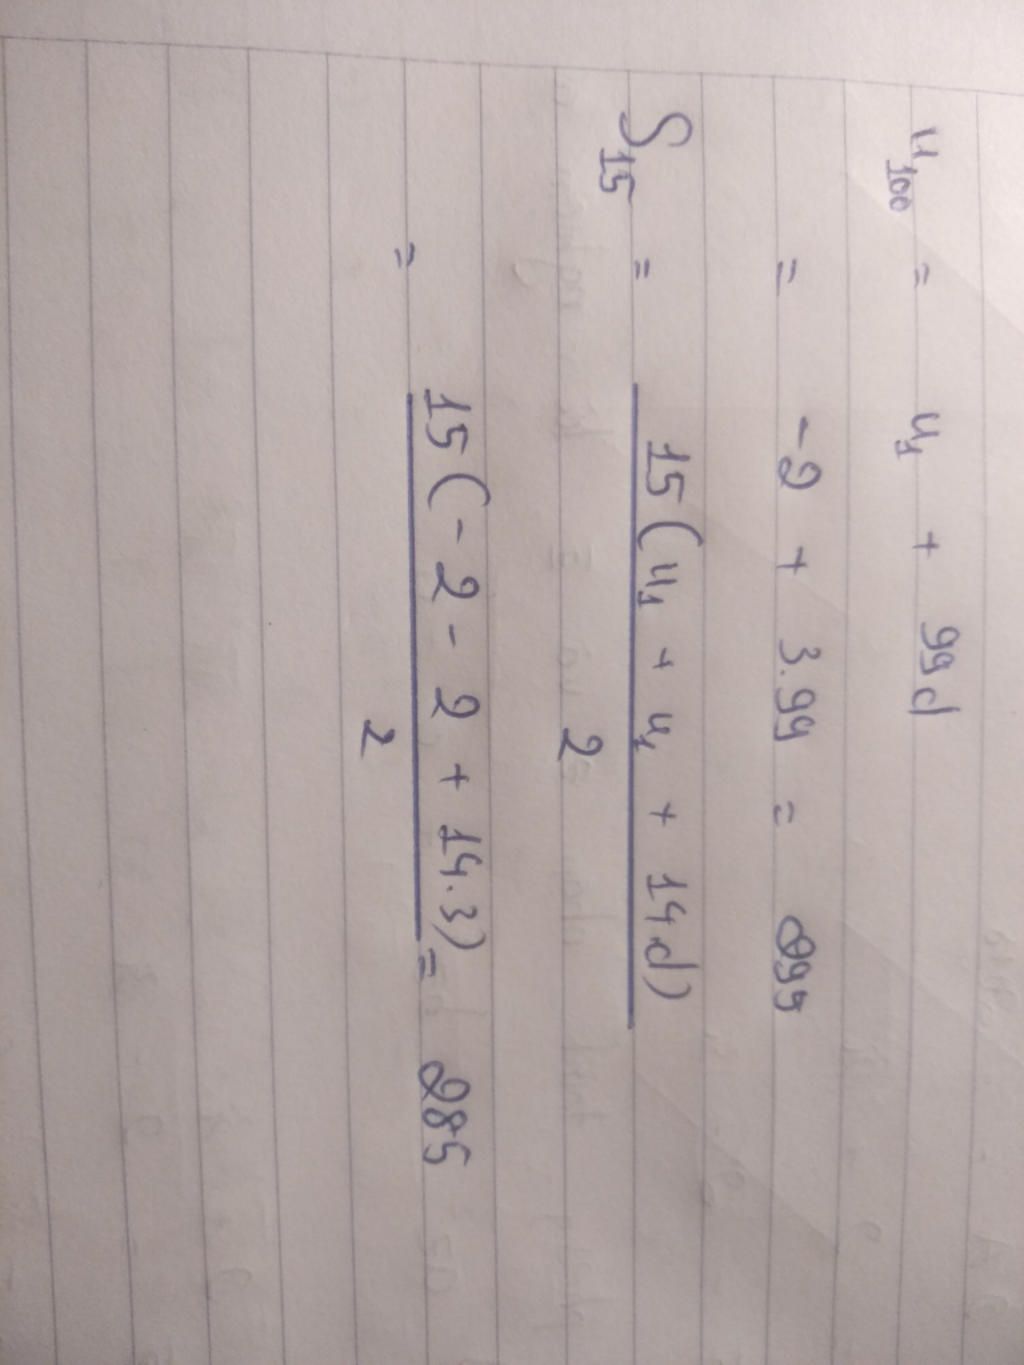 u₁₀₀ = u₁ + 99d
= -2 + 3.99 = 295
S₁₅ = 15(u₁ + u₁ + 14d) / 2
= 15(-2 - 2 + 14.3) / 2 = 285